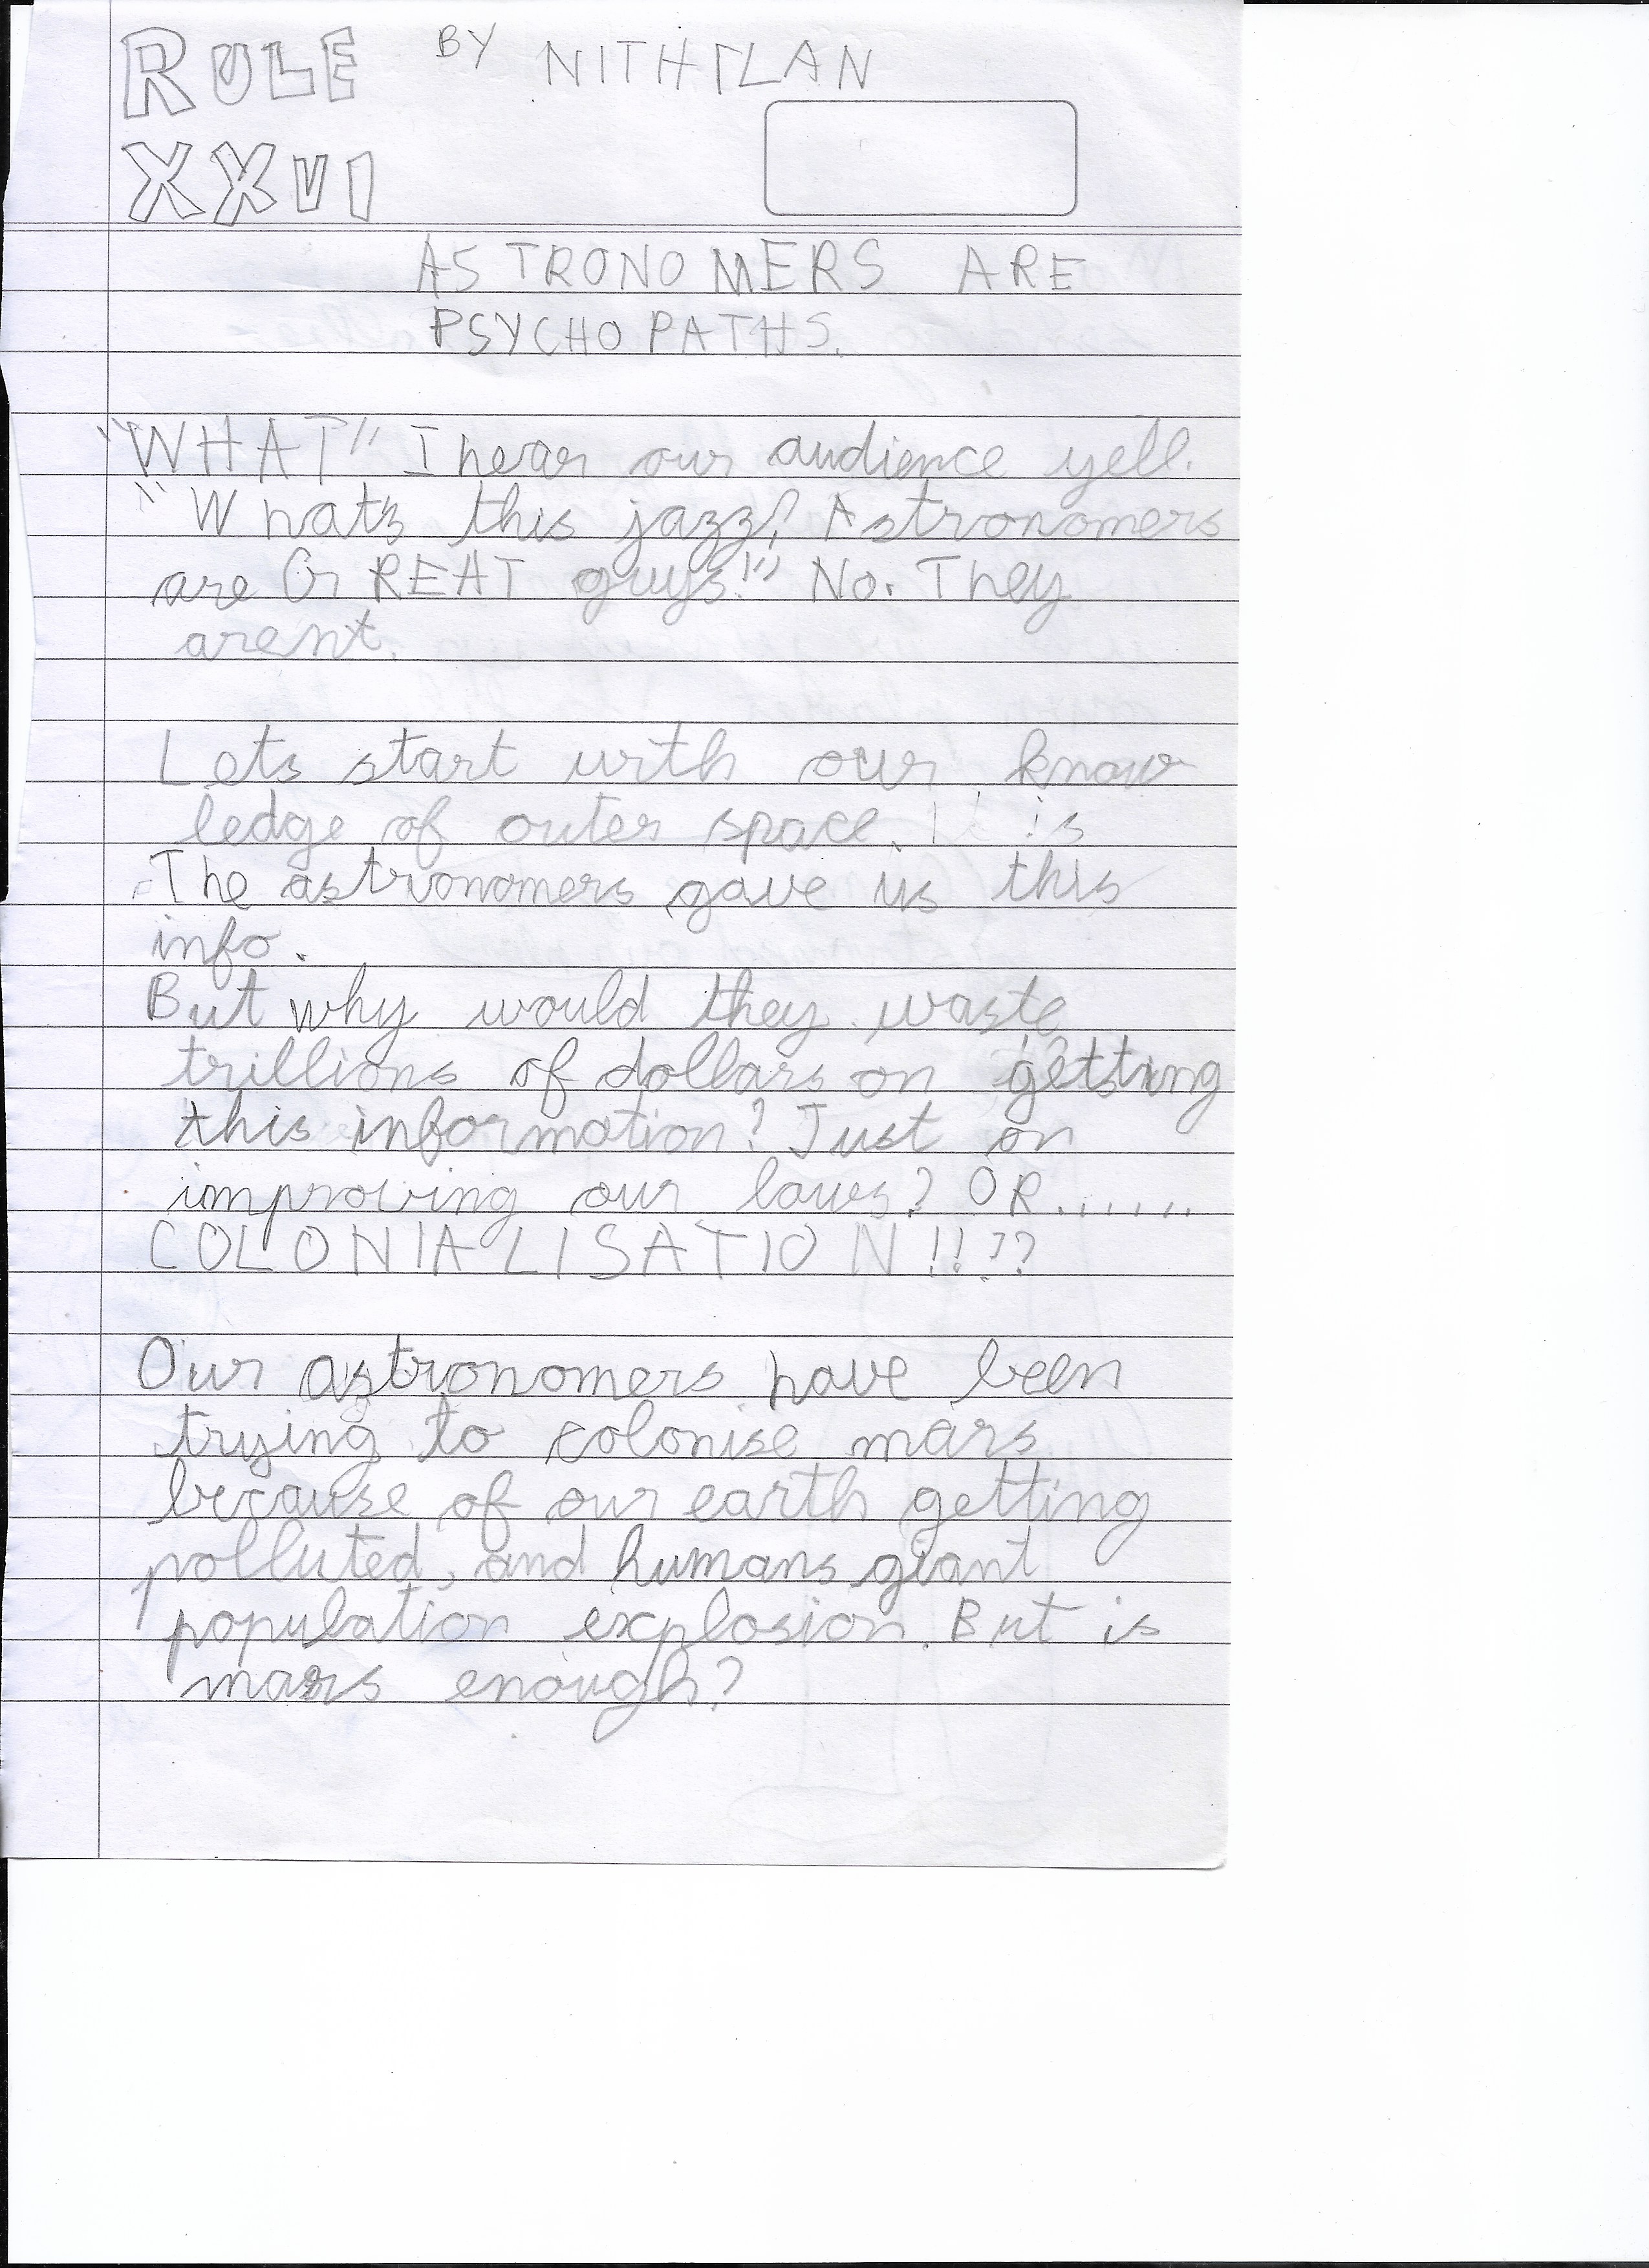 RULE BY NITHILAN
XXVI
ASTRONOMERS ARE
PSYCHOPATHS.
"WHAT" I hear our audience yell.
"Whats this jazz? Astronomers
are GREAT guys!" No. They
arent.
Lets start with our know
ledge of outer space. It is
The astronomers gave us this
info.
But why would they waste
trillions of dollars on getting
this information? Just on
improving our laws? OR......
COLONIALISATION!!??
Our astronomers have been
trying to colonise mars
because of our earth getting
polluted, and humans giant
population explosion. But is
mars enough?